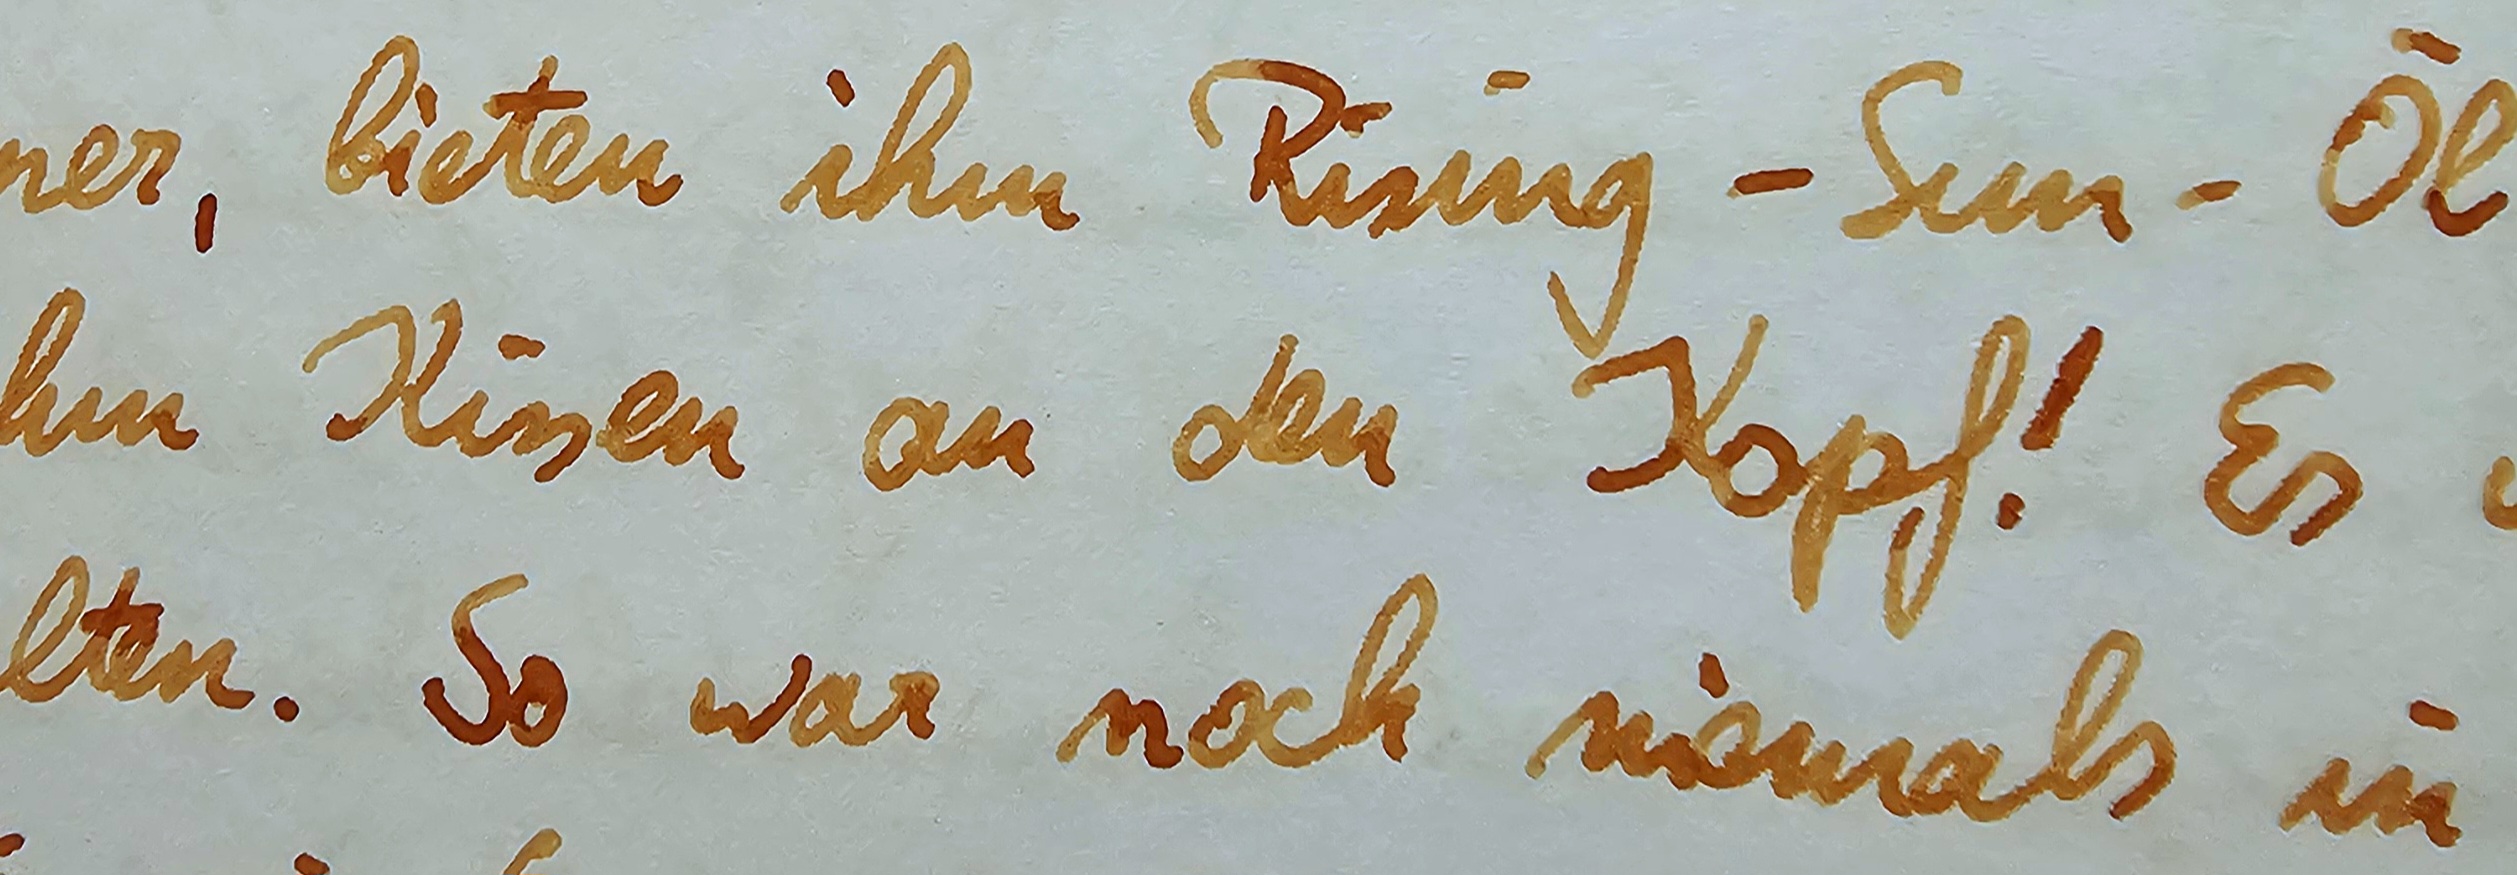 ner, bieten ihm Rising-Sun-Öl
hm Kissen an den Kopf! Es
lten. So war noch niemals in